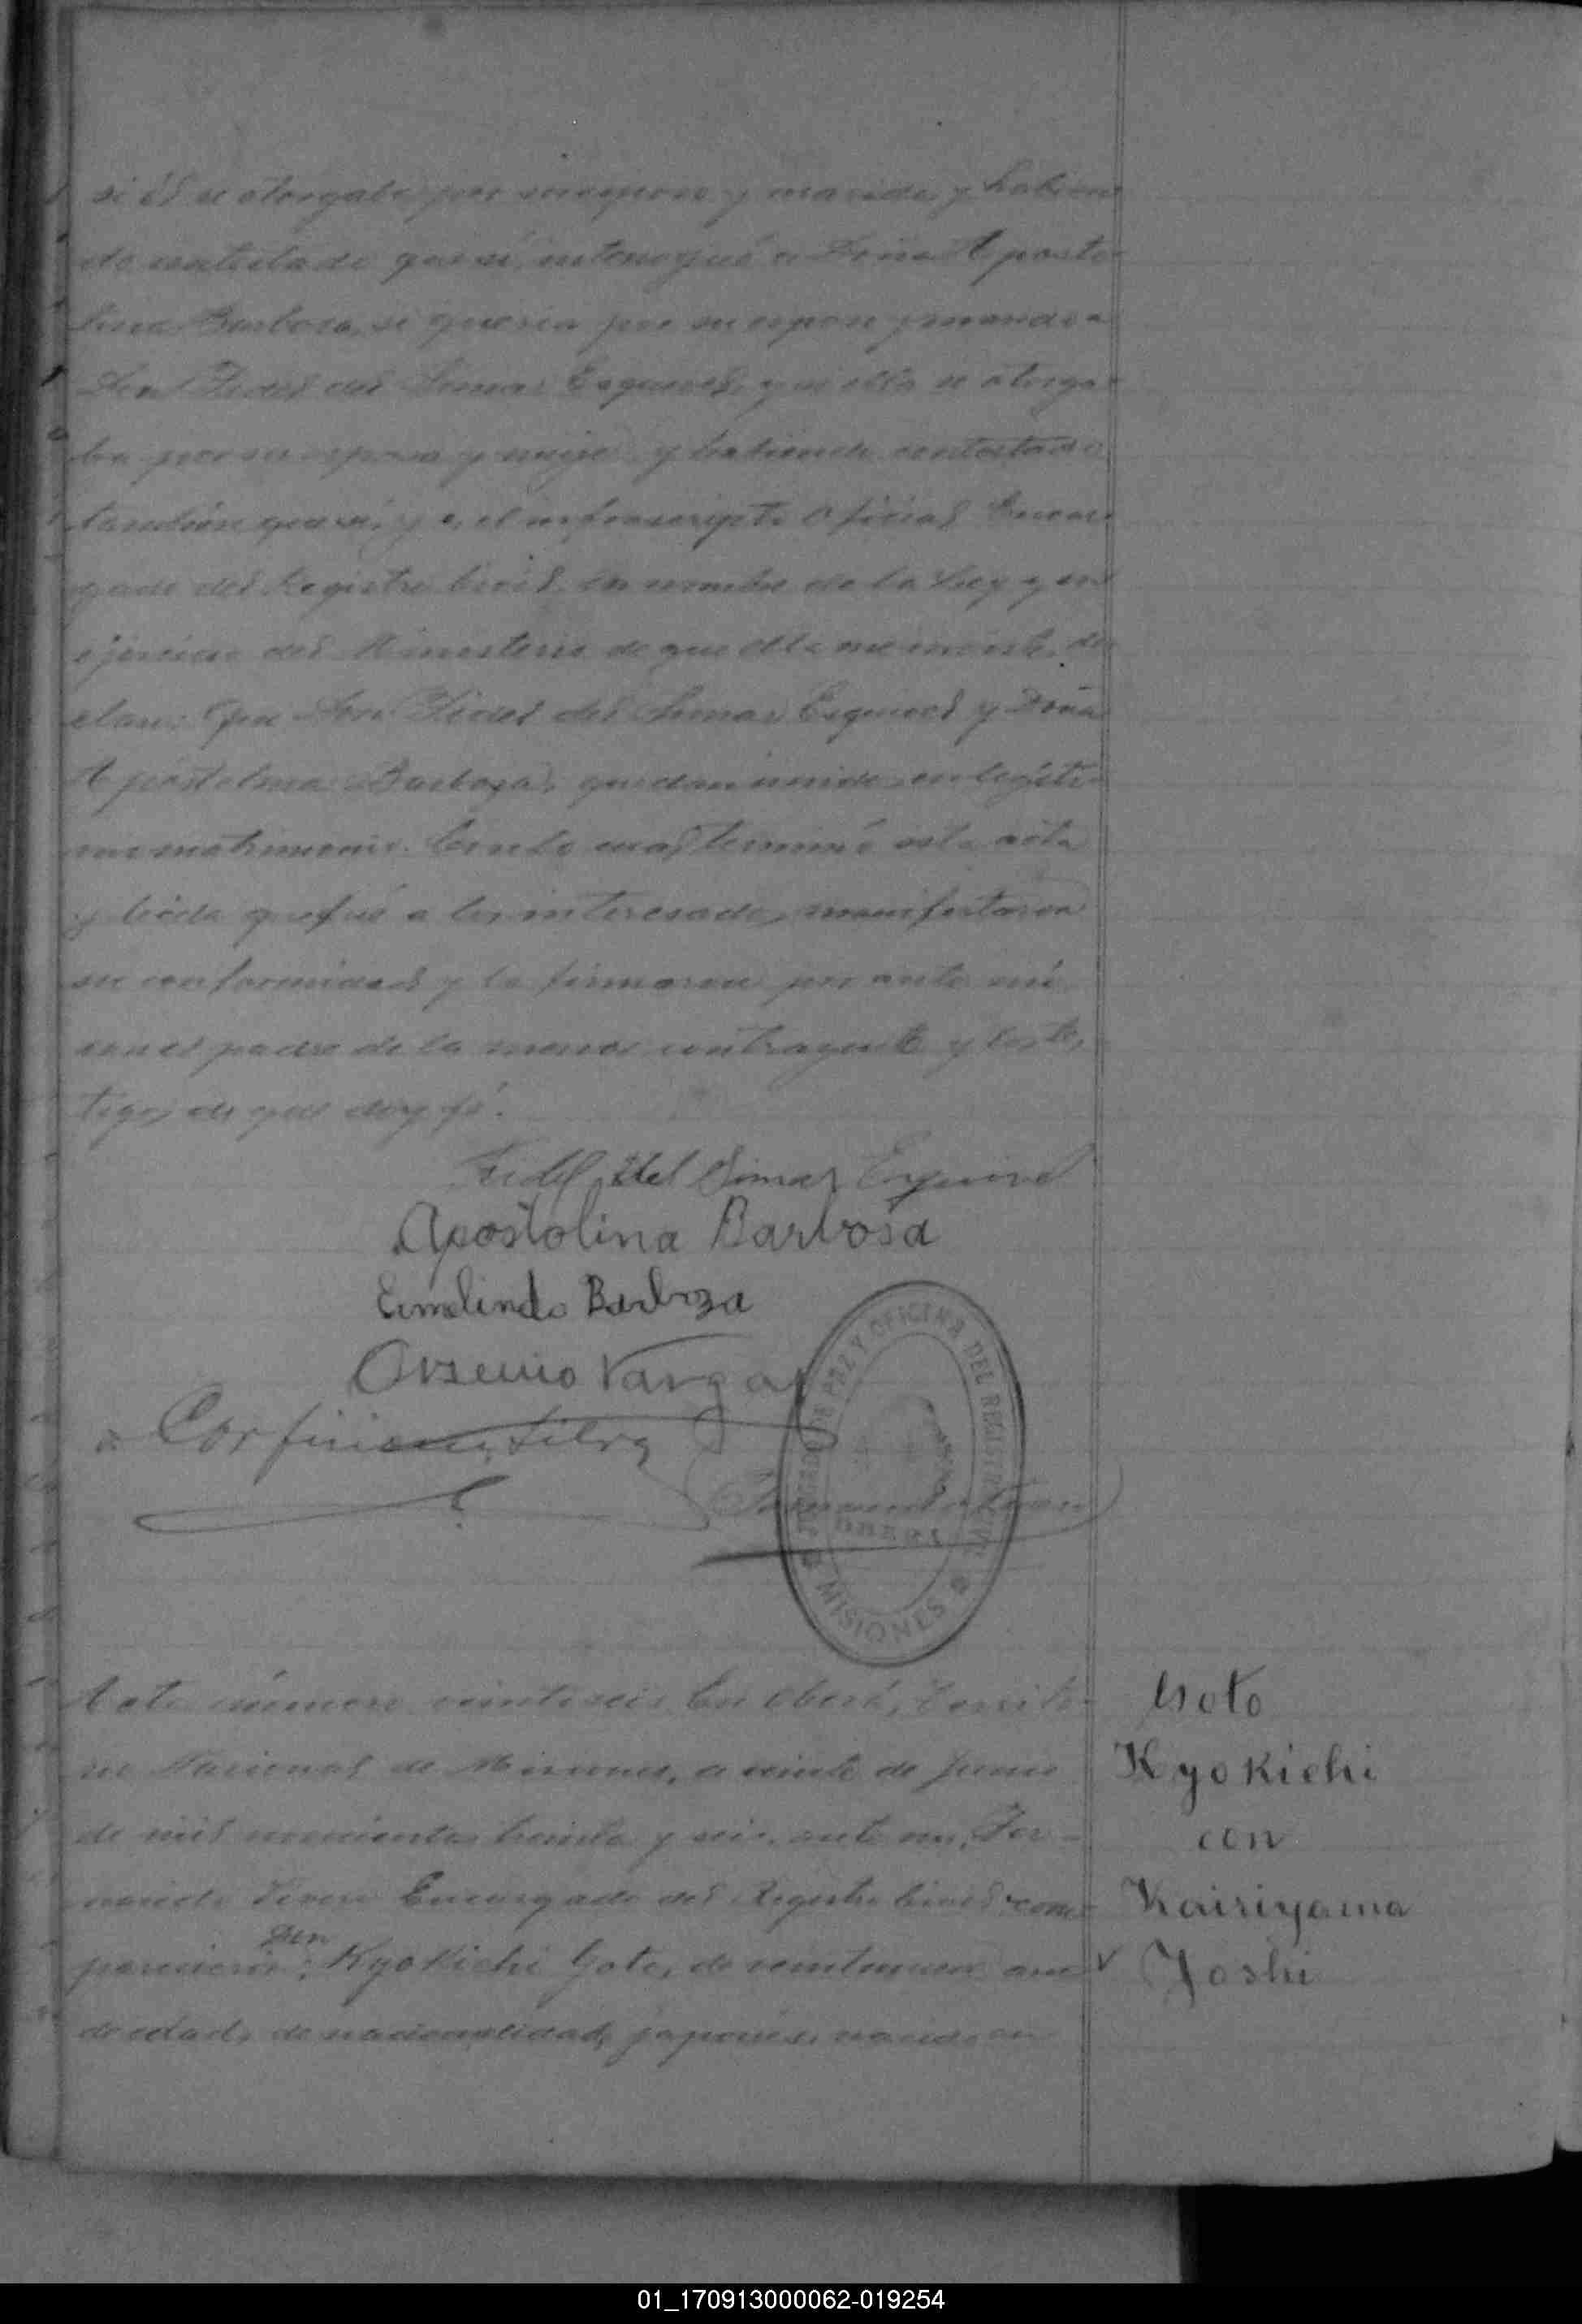 si él se otorgaba por su esposo y marido, y habien
do contestado que sí, interrogué a Doña Aposto
lina Barboza, si quería por su esposo y marido a
Don Fidel del Simar Esquivel, y si ella se otorga
ba por su esposa y mujer y habiendo contestado
también que sí, yo, el infrascripto Oficial Encar
gado del Registro Civil en nombre de la Ley y en
ejercicio del Ministerio de que ella me inviste, de
claro: Que Don Fidel del Simar Esquivel y Doña
Apostolina Barboza, quedan unidos en legíti
mo matrimonio. Con lo cual terminó esta acta
y leída que fué a los interesados, manifestaron
su conformidad y la firmaron por ante mí
con el padre de la menor contrayente y los tes
tigos de que doy fé.
Fidel del Simar Esquivel
Apostolina Barbosa
Ermelindo Barboza
Arsenio Vargas
Silva
JUZGADO DE PAZ Y OFICINA DEL REGISTRO CIVIL
OBERA
MISIONES
Acta número veintiseis En Oberá, Territo-
rio Nacional de Misiones, a veinte de Junio
de mil novecientos treinta y seis, ante mi, Fer-
nando Encargado del Registro Civil com-
Don
parecieron: Kyokichi Goto, de veintinueve años
de edad, de nacionalidad, japonés, nacido en
Goto
Kyokichi
con
Kairiyama
Yoshi
01_170913000062-019254